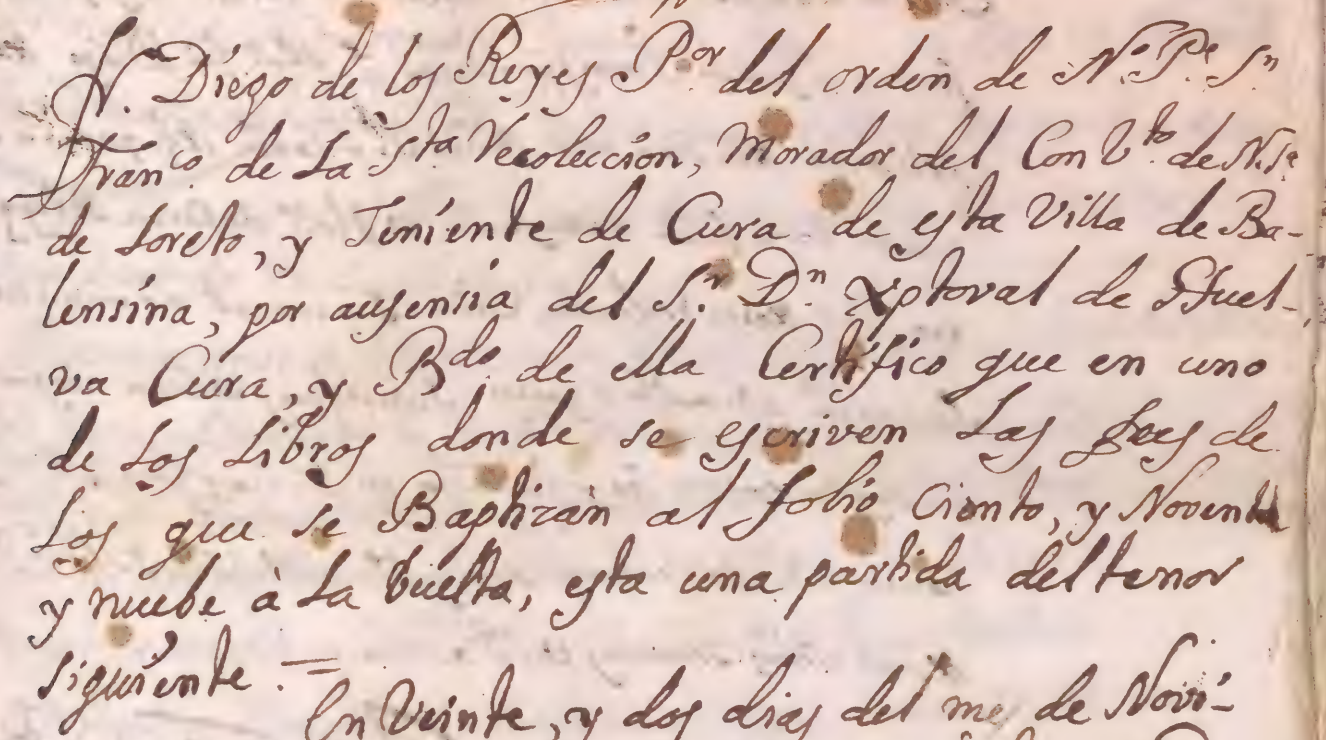 Fr. Diego de los Reyes P.or del orden de N.o P.e S.n
Fran.co de La S.ta Recoleccion, Morador del Conv.to de N. S.a
de Loreto, y Teniente de Cura de esta Villa de Ba-
lensina, por ausensia del S.r D.n Xptoval de Huel-
va Cura, y B.do de ella Certifico que en uno
de Los Libros donde se escriven Las fees de
Los que se Baptizan al folio Ciento, y Noventa
y nuebe à La buelta, esta una partida del tenor
siguiente. =
En Veinte, y dos dias del me de Novi-